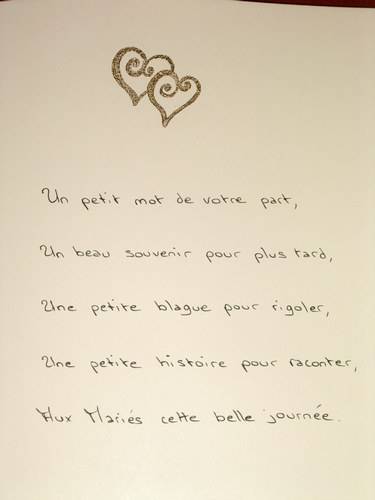 Un petit mot de votre part,
Un beau souvenir pour plus tard,
Une petite blague pour rigoler,
Une petite histoire pour raconter,
Aux Mariés cette belle journée.